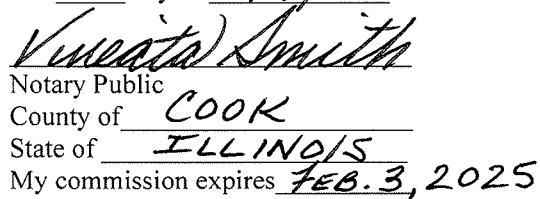 Smith
Notary Public
County of COOK
State of ILLINOIS
My commission expires FEB. 3, 2025